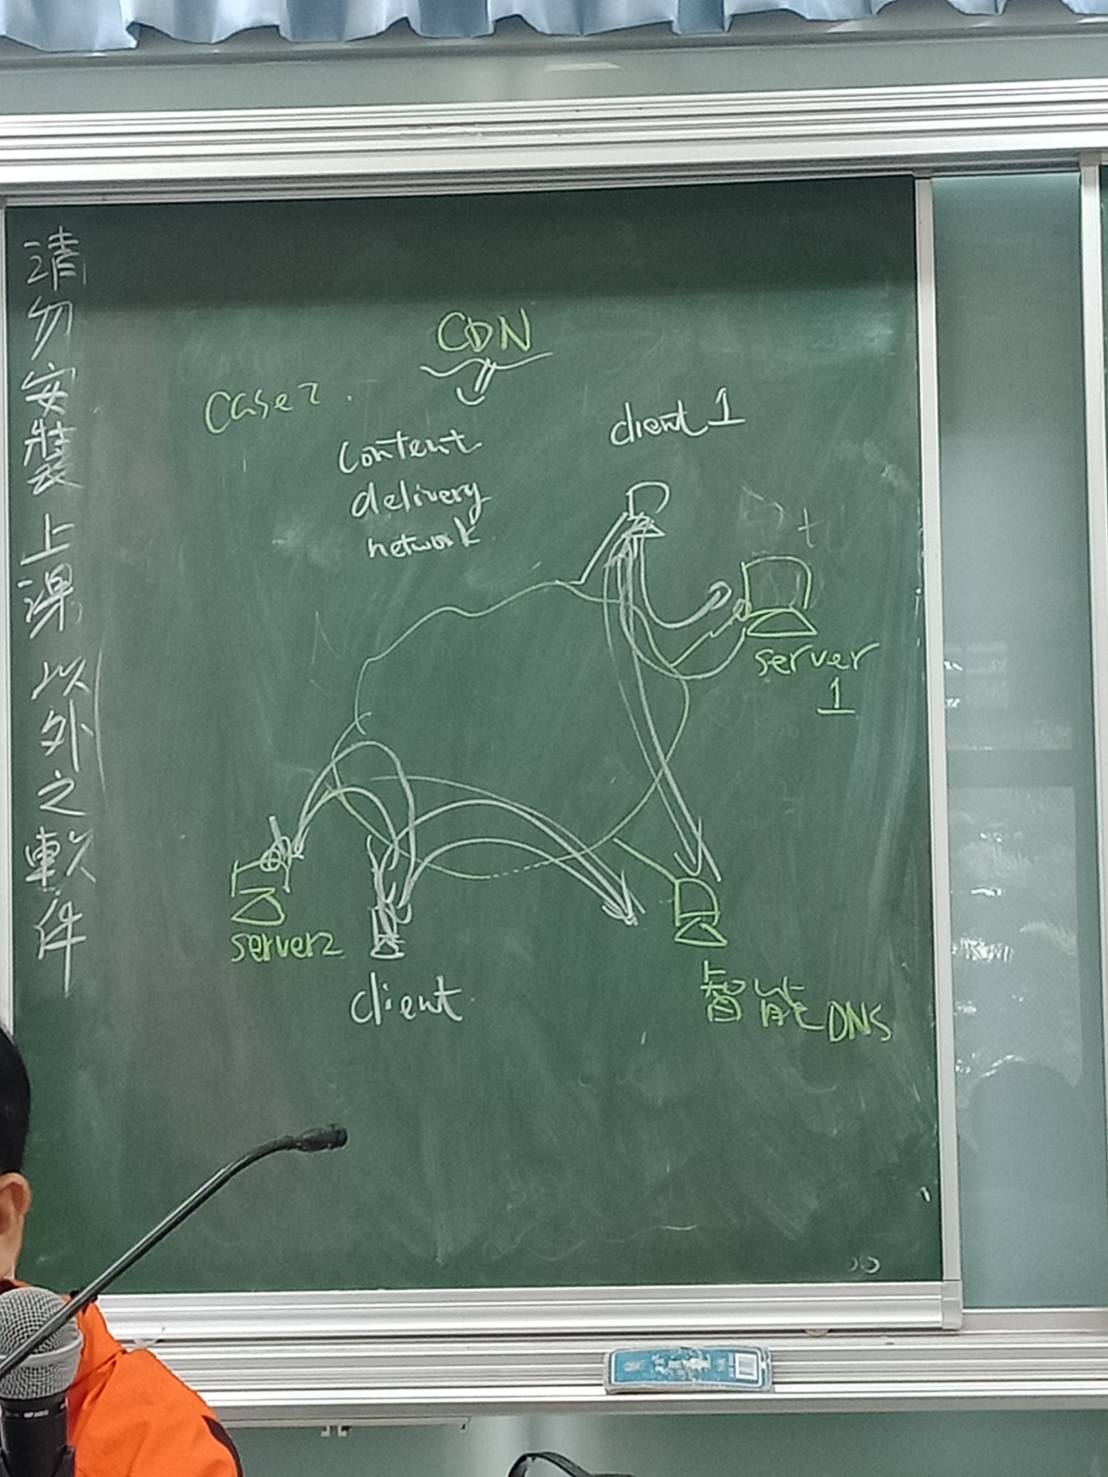 請勿安裝上課以外之軟件
CDN
Case 2.
Content
delivery
network
client 1
server
1
server2
client
智能DNS